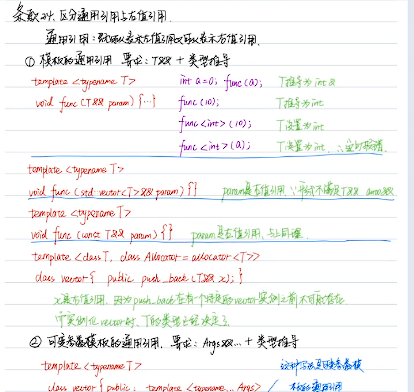 条款24. 区分通用引用与右值引用.
通用引用：既可以表示左值引用又可以表示右值引用.
① 模板的通用引用 导出：T&& + 类型推导
template <typename T>  int a=0; func(a);  T推导为int&
void func (T&& param) {…}  func(10);  T推导为int
func<int>(10);  T设置为int
func<int>(a);  T设置为int, ∴
template <typename T>
void func (std::vector<T>&& param) {}  param是右值引用, ∵形式不满足T&&
template <typename T>
void func (const T&& param) {}  param是右值引用, 与上同理.
template <class T, class Allocator = allocator<T>>
class vector { public: push_back (T&& x); }
x是右值引用, 因为push_back在有个特定的vector实例之前不可能存在
而实例化vector时, T的类型已经决定了.
② 可变参数模板的通用引用. 导出：Args&&… + 类型推导
template <typename T>
class vector { public: template <typename... Args>